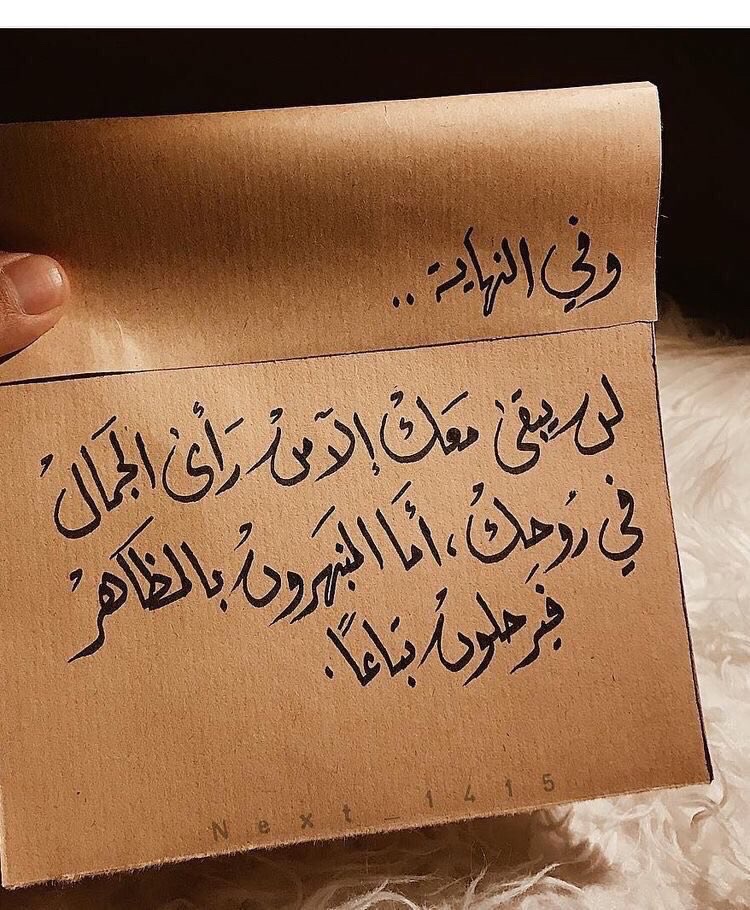 وفي النهاية ..
لن يبقى معك إلا من رأى الجمال
في روحك، أما المنبهرون بالمظاهر
فيرحلون تباعًا.
Next_1415